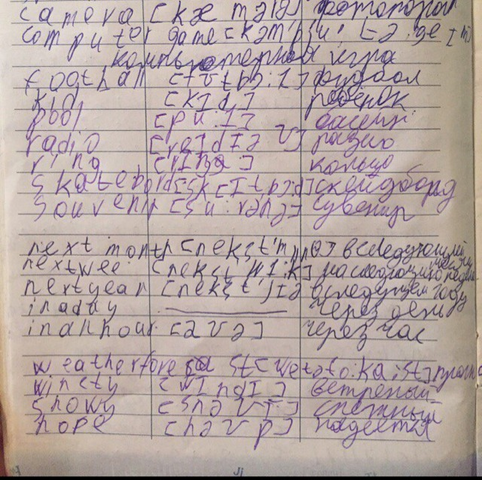 camera [kæmərə] фотопарат
computer game [kəmˈpju:tə geɪm]
компьютерная игра
football [fʊtbɔ:l] футбол
kid [kɪd] ребёнок
pool [pu:l] басеин
radio [reɪdɪəʊ] радио
ring [rɪŋ] кольцо
skatebord [skeɪtbɔ:d] скейдборд
souvenir [su:vənɪə] сувенир
next month [nekst mʌnθ] вследующий
nextwee [nekst wi:k]
nextyear [nekst jɪə] вследущем году
inaday через день
inanhour [aʊə] через час
weatherforecast
windy [wɪndɪ] ветреный
snowy [snəʊɪ] снежный
hope [həʊp] надеется